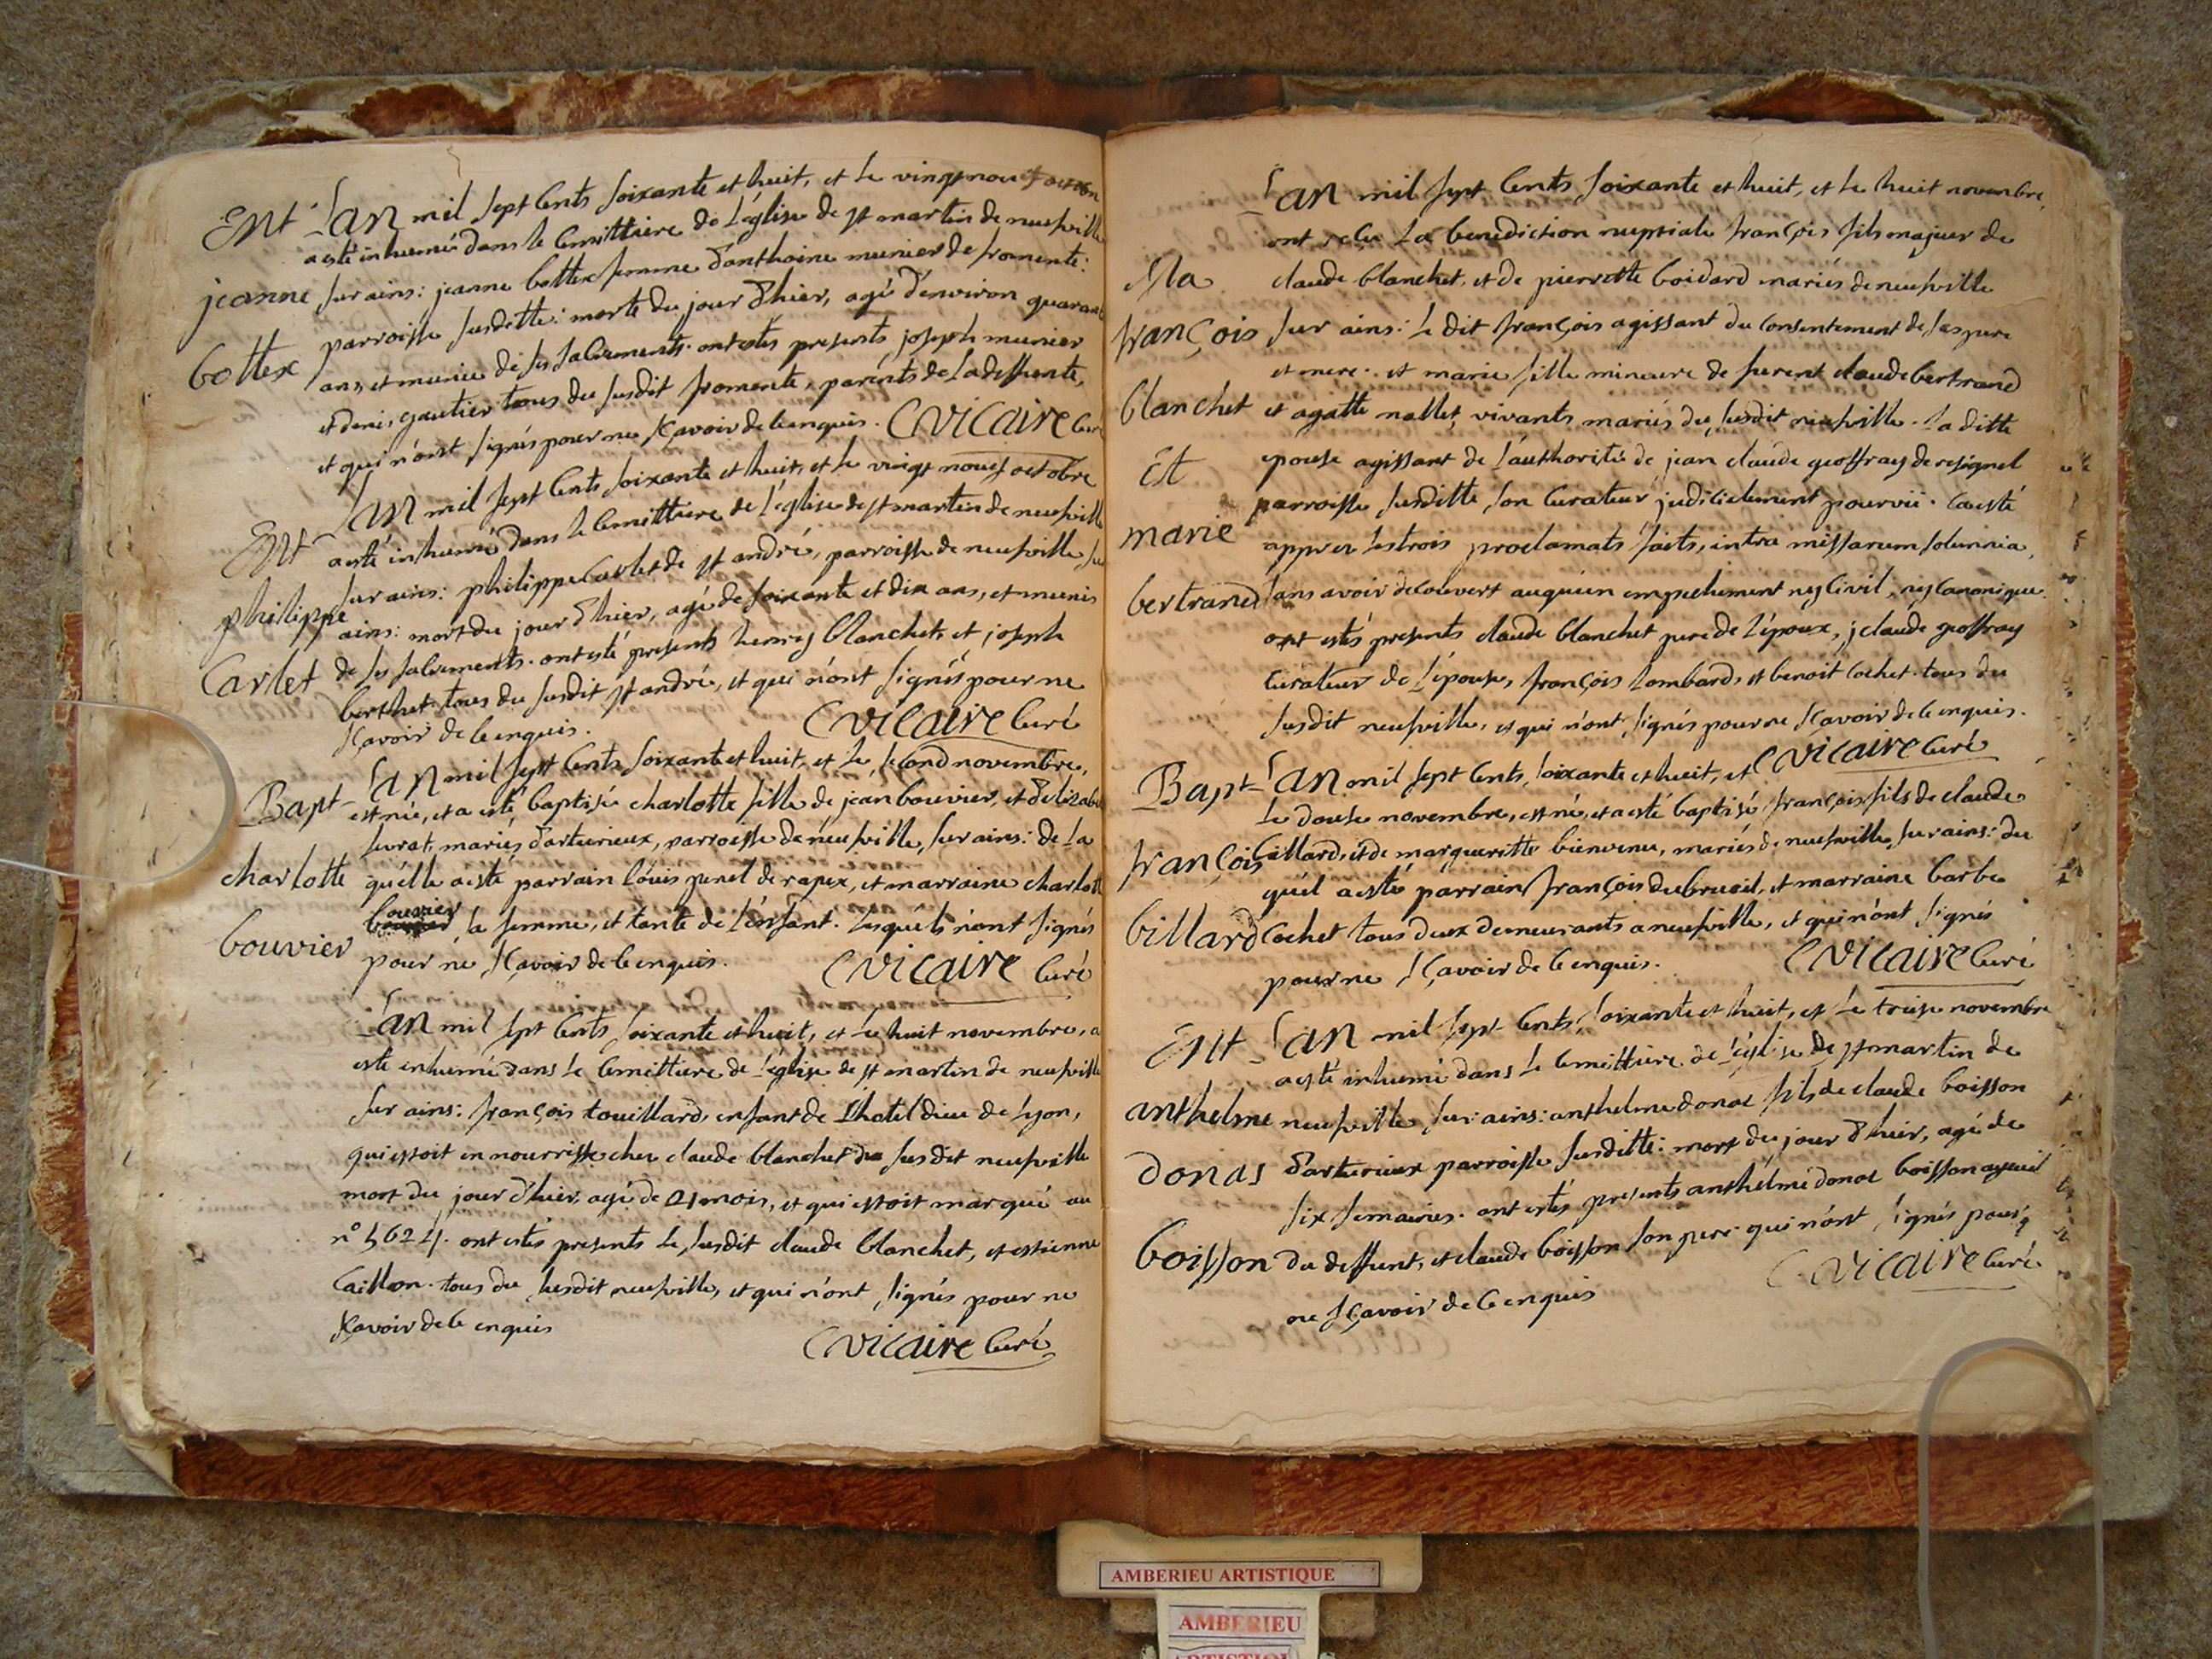 Ent L'an mil sept cents soixante et huit, et le vingt neuf
a esté inhumée dans le cemittiere de l'église de st martin de neufville
jeanne sur ains: jeanne bottex femme d'anthoine munier de fromente:
parroisse susdette: morte du jour d'hier, agé d'environ quarante
bottex ans, et munie de ses sacrements. ont estés presents joseph munier
et denis gautier tous du susdit fromente, parents de la deffunte,
et qui n'ont signés pour ne sçavoir de ce enquis. CVicaire Curé
L'an mil sept cents soixante et huit, et le vingt neuf octobre
Ent a esté inhumé dans le cemittiere de l'église de st martin de neufville
philippe sur ains: philippe Carlet de st andré, parroisse de neufville sur
ains: mort du jour d'hier, agé de soixante et dix ans, et munis
Carlet de ses sacrements. ont esté presents henry blanchet, et joseph
berthet tous du susdit st andré, et qui n'ont signés pour ne
sçavoir de ce enquis. CVicaire Curé
L'an mil sept cents soixante et huit, et le second novembre,
Bapt est née, et a esté baptisée charlotte fille de jean bouvier, et d'elizabet
mariés d'arturieux, parroisse de neufville, sur ains: de la
charlotte quelle a esté parrain louis perret de rapex, et marraine charlotte
bouvier sa femme, et tante de l'enfant. lesquels n'ont signés
bouvier pour ne sçavoir de ce enquis. CVicaire Curé
L'an mil sept cents soixante et huit, et le huit novembre, a
esté enhumé dans le cemittiere de l'église de st martin de neufville
sur ains: françois touillard, enfant de l'hotel dieu de lyon,
qui estoit en nourrisse chez claude blanchet du susdit neufville
mort du jour d'hier, agé de 21 mois, et qui estoit marqué au
n° 5624. ont estés presents le susdit claude blanchet, et estienne
Caillon. tous du susdit neufville, et qui n'ont signés pour ne
sçavoir de ce enquis
CVicaire Curé
L'an mil sept cents soixante et huit, et le huit novembre,
ont reçu la benediction nuptiale françois fils majeur de
Ma claude blanchet, et de pierrette boidard mariés de neufville
françois sur ains: le dit françois agissant du consentement de ses pere
et mere. et marie fille mineure de furent claude bertrand
blanchet et agatte mallet, vivants mariés du susdit neufville. la ditte
Et epouse agissant de l'authorité de jean claude geoffray de resignel
parroisse susditte son curateur judiciellement pourvü. ca esté
marie apprez les trois proclamats faits, intra missarum solemnia,
bertrand sans avoir decouvert auqueun empechement ny civil, ny canonique.
ont estés presents claude blanchet pere de l'époux, j claude geoffray
curateur de l'épouse, françois lombard, et benoit cochet. tous du
susdit neufville, et qui n'ont signés pour ne sçavoir de ce enquis.
CVicaire Curé
Bapt L'an mil sept cents, soixante et huit, et
le douse novembre, est né, et a esté baptisé françois fils de claude
françois billard, et de margueritte bienvenu, mariés de neufville sur ains: du
quél a esté parrain françois dubrueil, et marraine barbe
billard Cochet tous deux demeurants a neufville, et qui n'ont signés
pour ne sçavoir de ce enquis. CVicaire Curé
Ent L'an mil sept cents, soixante et huit, et le treise novembre
a esté inhumé dans le cemittiere de l'église de st martin de
anthelme neufville sur: ains: anthelme donat fils de claude boisson
donas d'arturieux parroisse susditte: mort du jour d'hier, agé de
six semaines. ont estés presents anthelme donat boisson ayeuil
boisson du deffunt, et claude boisson son pere. qui n'ont signés pour
ne sçavoir de ce enquis CVicaire Curé
AMBERIEU ARTISTIQUE
AMBERIEU
ARTISTIQUE